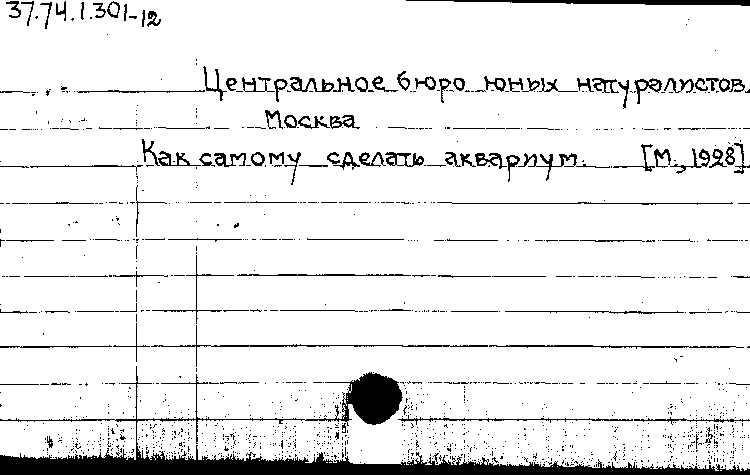 37.74.1.301-12
Центральное бюро юных натуралистов.
Москва
Как самому сделать аквариум. [М., 1928]